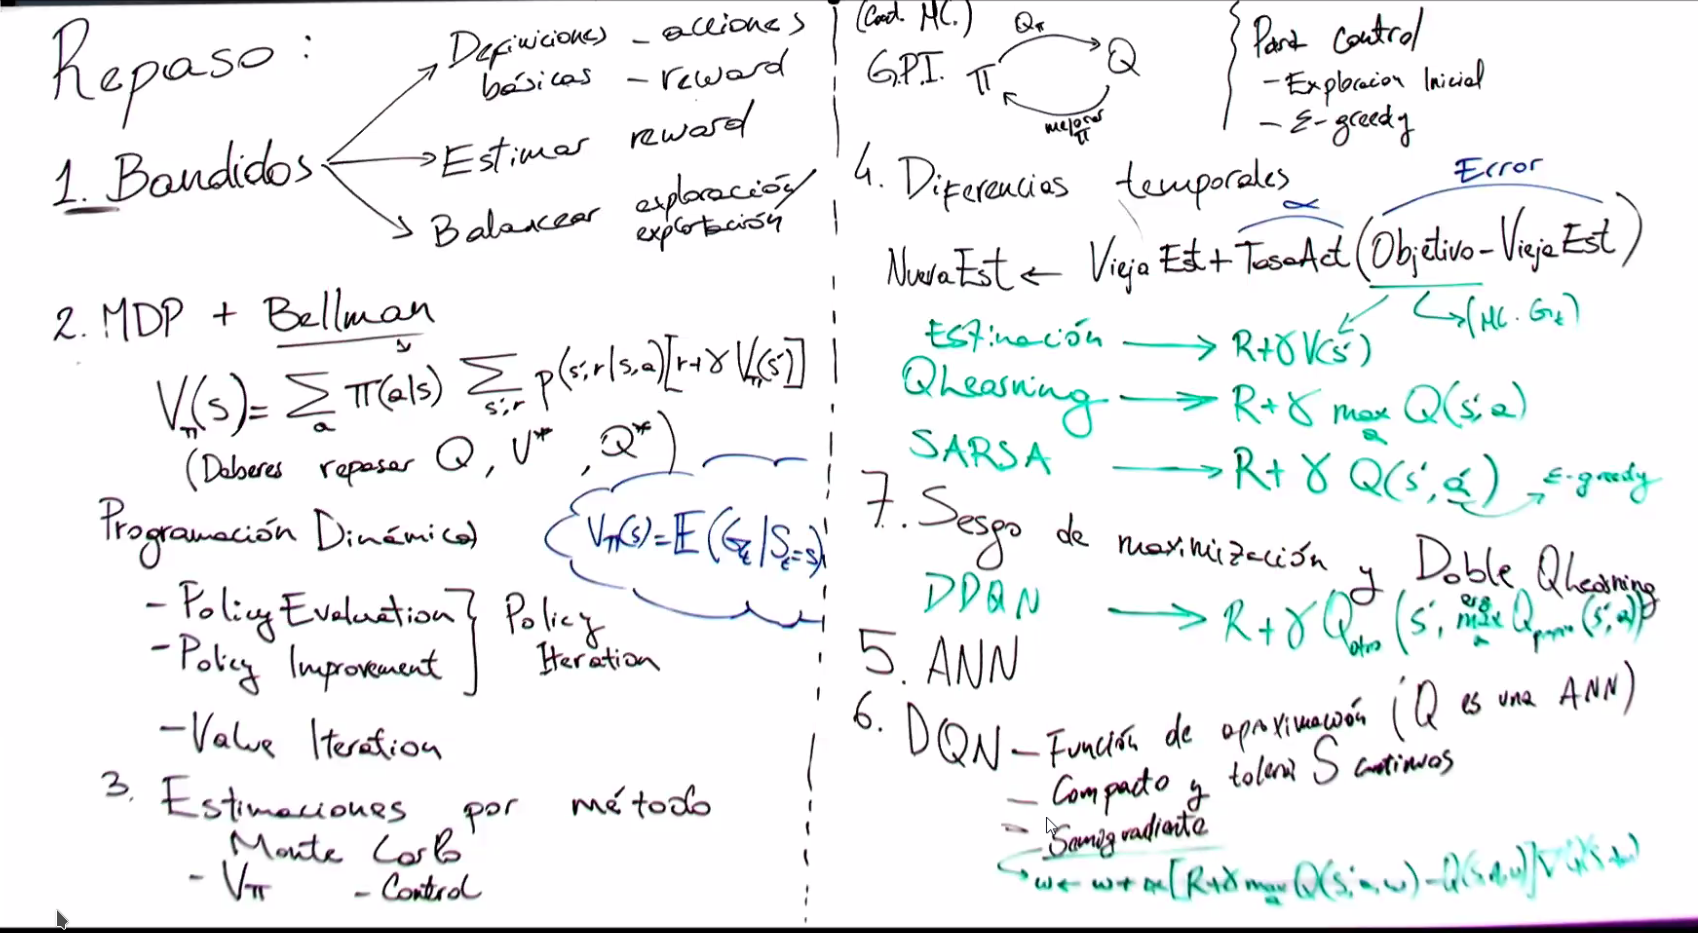 Repaso :
1. Bandidos
Definiciones básicas - acciones
- reward
Estimar reward
Balancear exploración/
explotación
2. MDP + Bellman
Vπ(s) = Σₐ π(a|s) Σ s',r p(s',r|s,a)[r+γ Vπ(s')]
(Deberes repasar Q, V*, Q*)
Vπ(s) = 𝔼(Gt|St=s)
Programación Dinámica
- Policy Evaluation } Policy
- Policy Improvement } Iteration
- Value Iteration
3. Estimaciones por método
Monte Carlo
- Vπ - Control
(Cont. MC.)
G.P.I. π Qπ Q
mejorar π
Para control
- Exploracion Inicial
- ε-greedy
4. Diferencias temporales
Error
α
NuevaEst ← Vieja Est + TasaAct (Objetivo - Vieja Est)
(MC. Gt)
Estimación → R+γV(s')
QLearning → R+γ max ₐ Q(s',a)
SARSA → R+γ Q(s',a') → ε-greedy
7. Sesgo de maximización y Doble QLearning
DDQN → R+γ Q (s', arg max ₐ Q (s',a))
5. ANN
6. DQN - Función de aproximación (Q es una ANN)
- Compacto y tolera S continuos
- Semigradiente
w ← w + α[R+γ max ₐ Q(s',a,w) - Q(s,a,w)]∇Q(s,a,w)